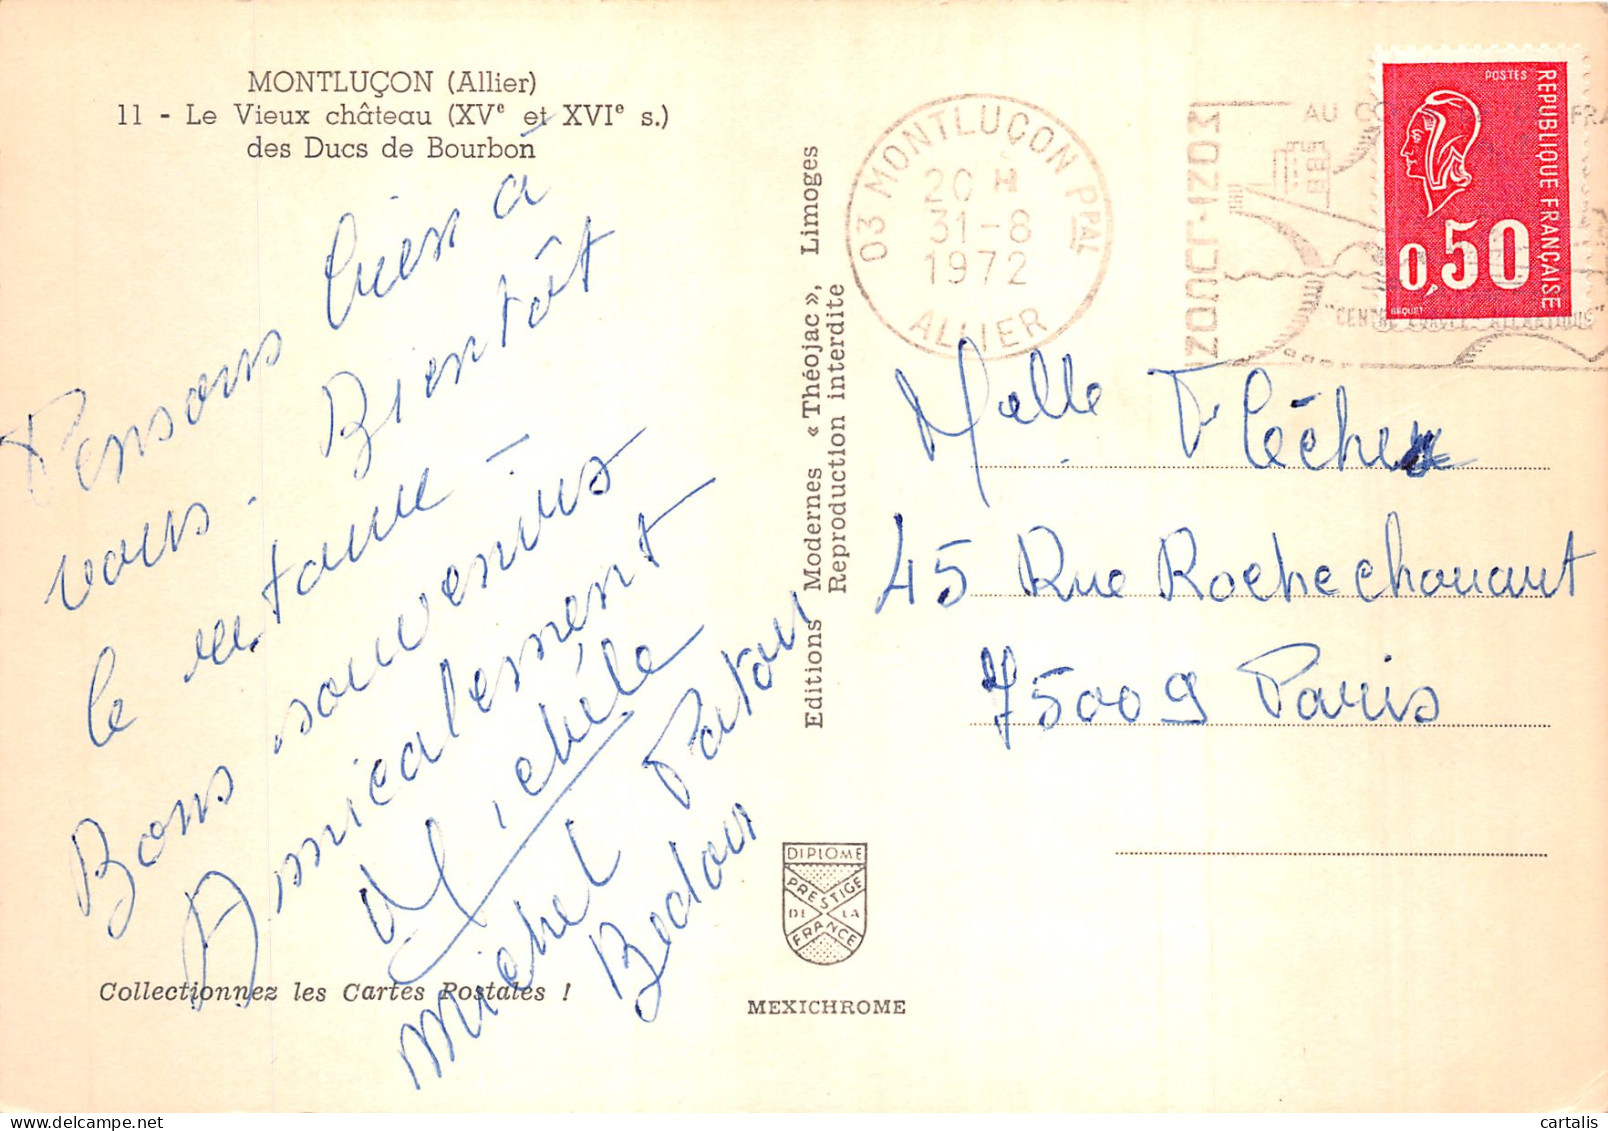 MONTLUÇON (Allier)
11 - Le Vieux château (XVe et XVIe s.)
des Ducs de Bourbon
Pensons bien à
vous. Bientôt
le retour -
Bons souvenirs
Amicalement
Michèle
Michel Paton
Collectionnez les Cartes Postales !
Editions Modernes « Théojac », Limoges
Reproduction interdite
DIPLOME
PRESTIGE
DE LA
FRANCE
MEXICHROME
03 MONTLUÇON PPAL
20 H
31-8
1972
ALLIER
MONTLUÇON
AU
FRA
POSTES
REPUBLIQUE FRANÇAISE
0,50
BEQUET
Melle Flèche
45 Rue Rochechouart
75009 Paris
cartalis